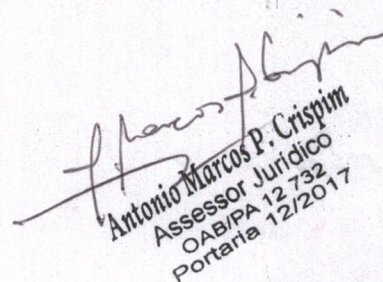 Marcos P. Crispim
Antonio Marcos P. Crispim
Assessor Jurídico
OAB/PA 12 732
Portaria 12/2017